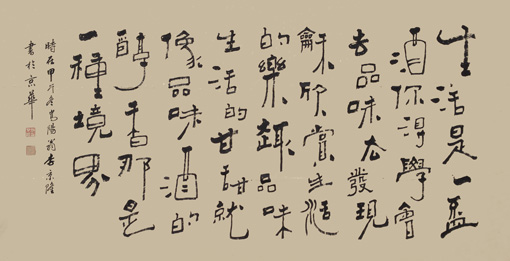 生活是一盃
酒你得學會
去品味去發現
龢欣賞生活
的樂趣品味
生活的甘甜就
像品味酒的
醇香那是
一種境界
時在甲午冬
書於京華